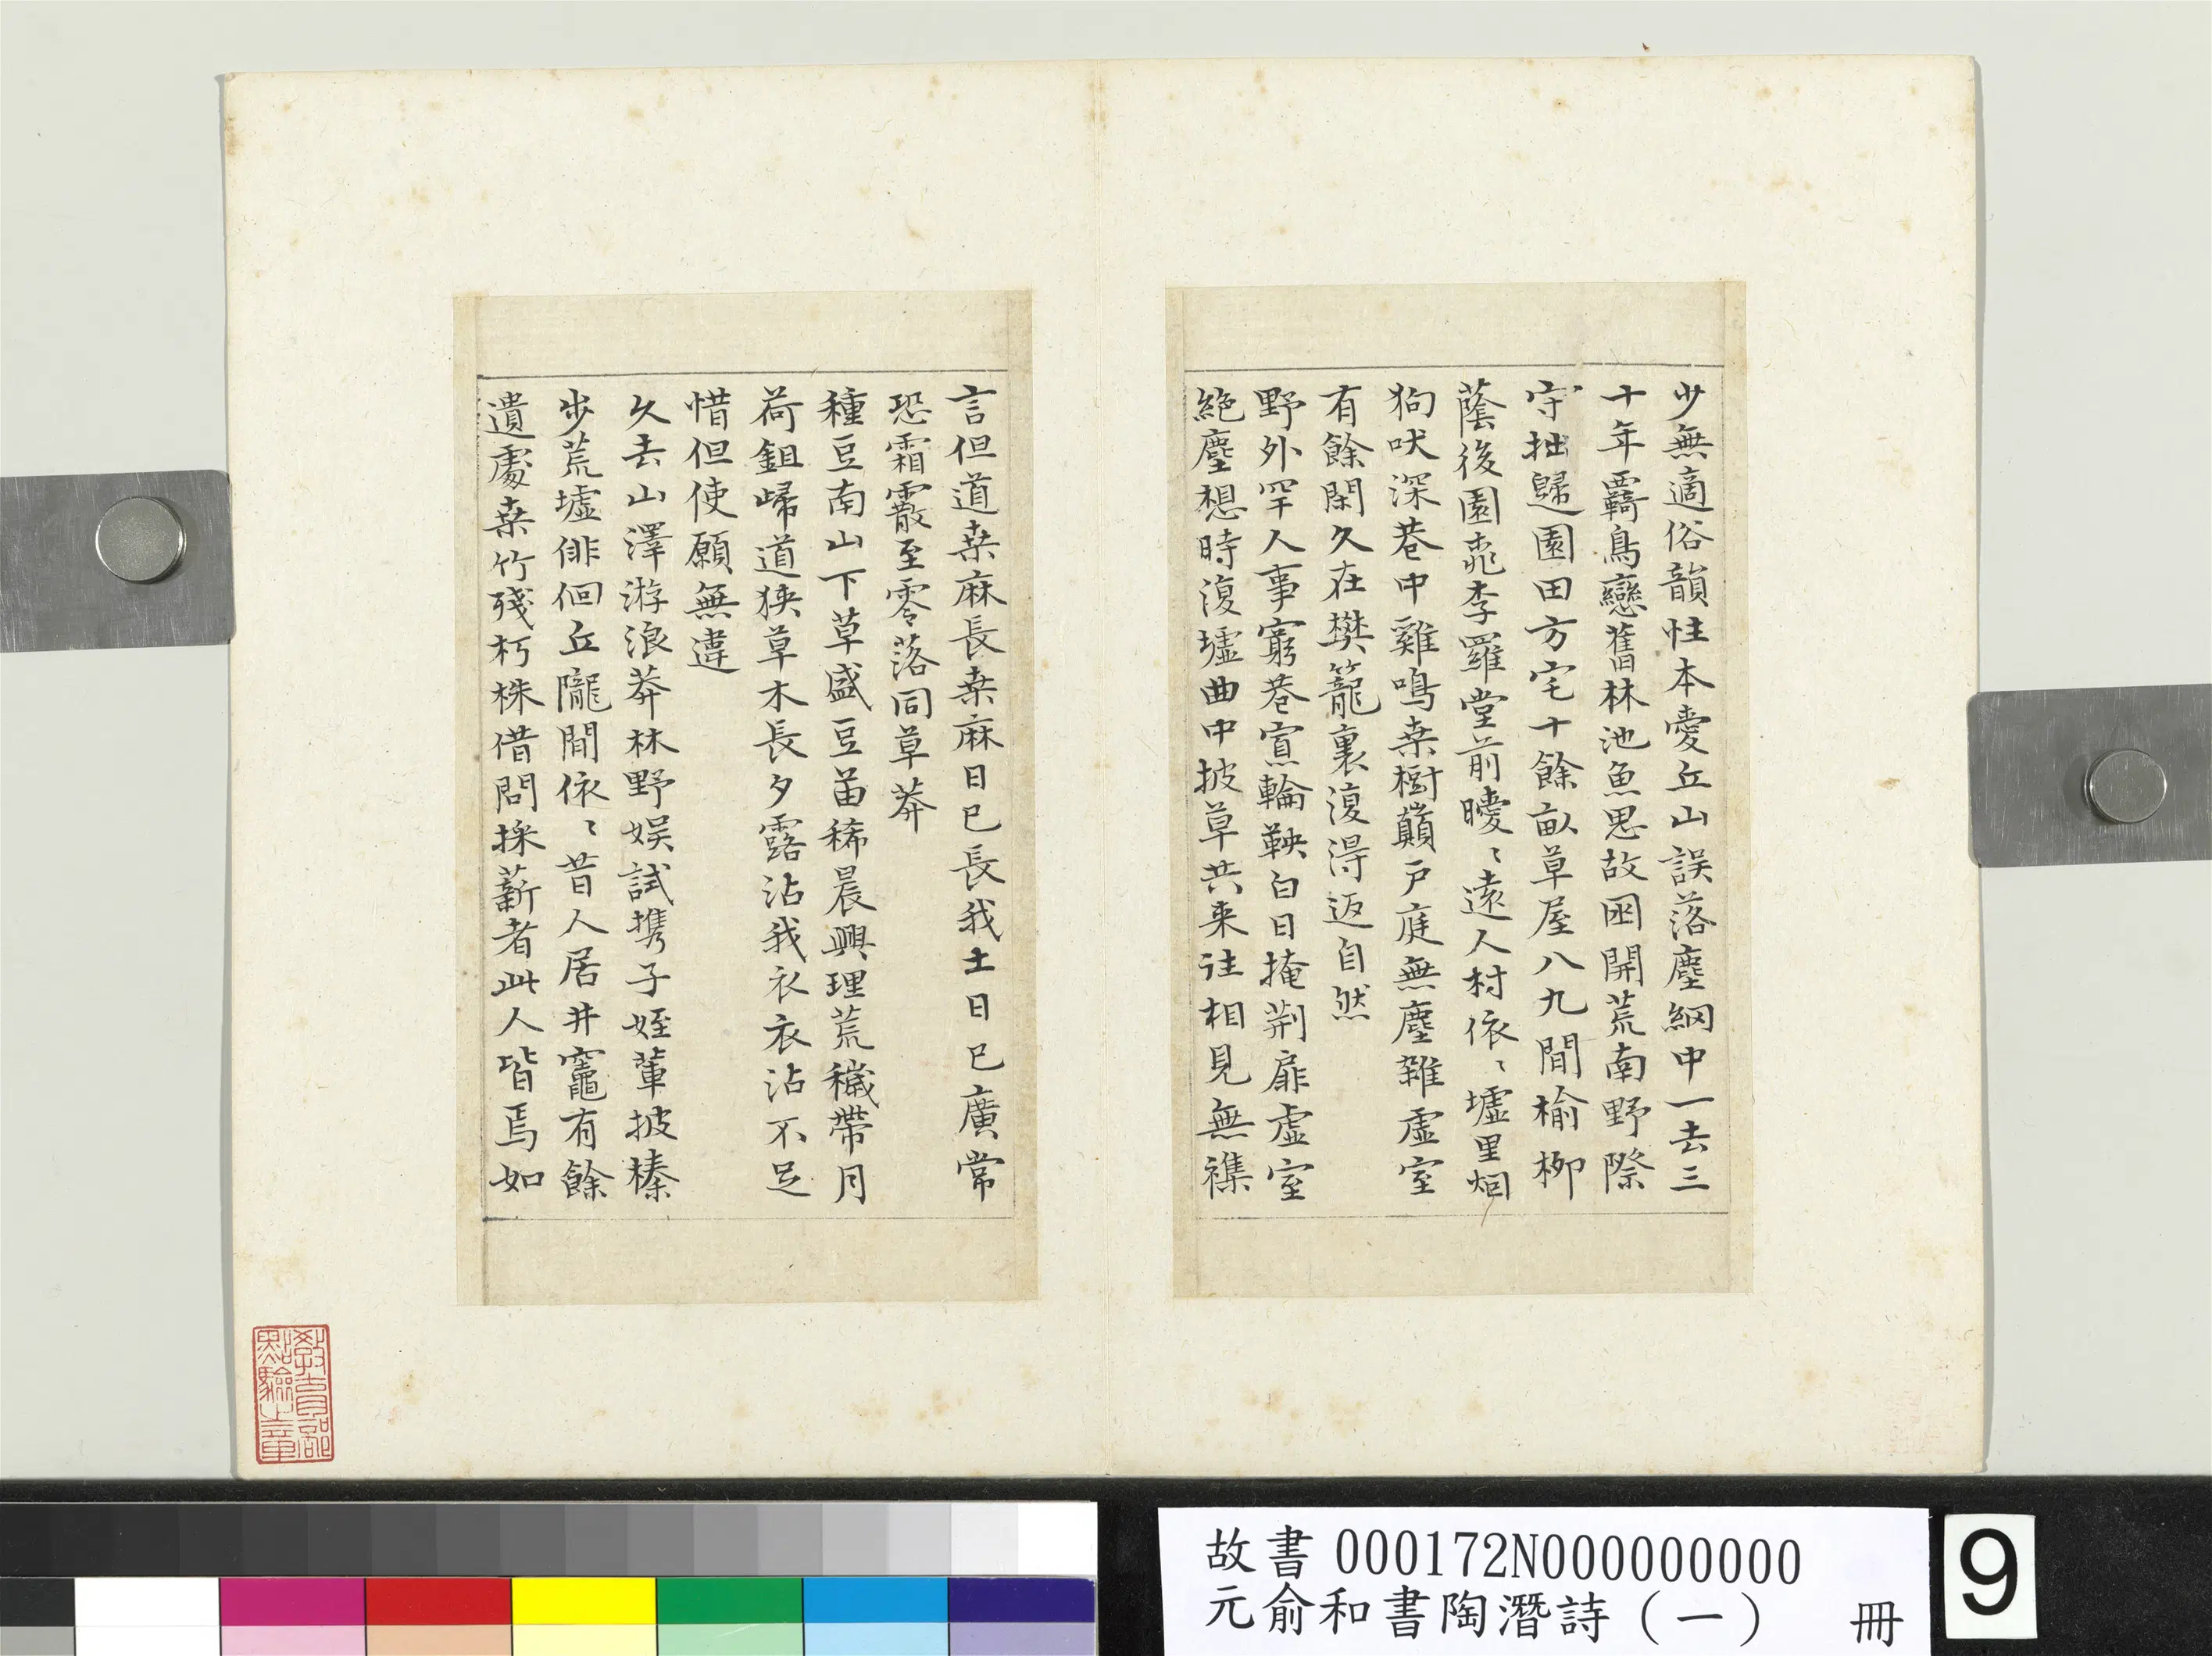 少無適俗韻性本愛丘山誤落塵網中一去三
十年羈鳥戀舊林池魚思故困開荒南野際
守拙歸園田方宅十餘畝草屋八九間榆柳
蔭後園桃李羅堂前曖〻遠人村依〻墟里烟
狗吠深巷中雞鳴桒樹巔戶庭無塵雜虛室
有餘閑久在樊籠裏復得返自然
野外罕人事窮巷寡輪鞅白日掩荆扉虛室
絕塵想時復墟曲中披草共来往相見無襍
言但道桒麻長桒麻日已長我土日已廣常
恐霜霰至零落同草莽
種豆南山下草盛豆苗稀晨興理荒穢帶月
荷鉏歸道狹草木長夕露沾我衣衣沾不足
惜但使願無違
久去山澤游浪莽林野娱試携子姪輩披榛
步荒墟俳佪丘隴間依〻昔人居井竈有餘
遺處桒竹殘朽株借問採薪者此人皆焉如
教育部
點驗之章
故書 000172N000000000
元俞和書陶潛詩（一） 冊
9